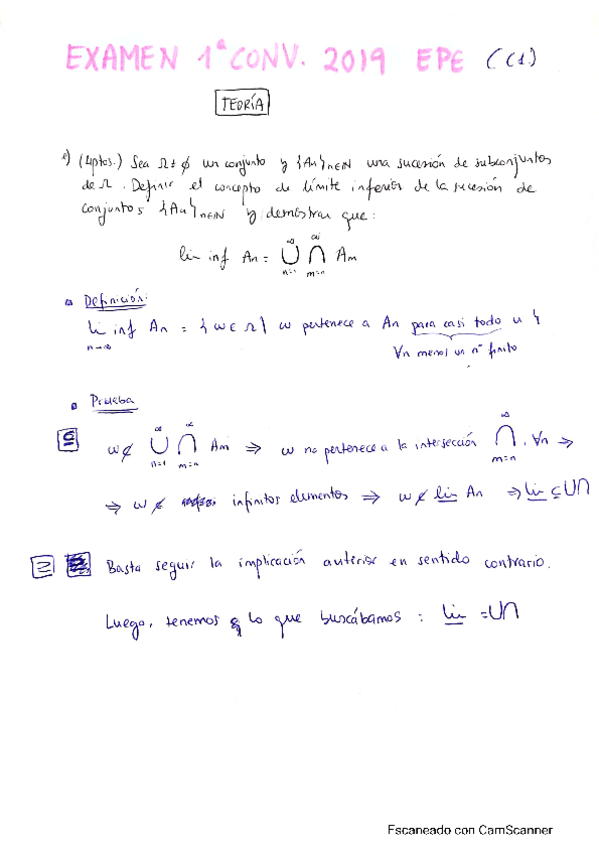 EXAMEN 1ª CONV. 2019 EPE (C1)
TEORÍA
(4ptos.) Sea Ω ≠ ∅ un conjunto y {An}n∈ℕ una sucesión de subconjuntos
de Ω. Definir el concepto de límite inferior de la sucesión de
conjuntos {An}n∈ℕ y demostrar que:
lim inf An = ⋃ ⋂ Am
n=1 m=n
Definición:
lim inf An = {ω ∈ Ω | ω pertenece a An para casi todo n}
n→∞
∀n menos un nº finito
Prueba
⊆
ω ∉ ⋃ ⋂ Am ⇒ ω no pertenece a la intersección ⋂, ∀n ⇒
n=1 m=n m=n
⇒ ω ∉ infinitos elementos ⇒ ω ∉ lim An ⇒ lim ⊆ ⋃⋂
⊇ Basta seguir la implicación anterior en sentido contrario.
Luego, tenemos lo que buscábamos: lim = ⋃⋂
Escaneado con CamScanner